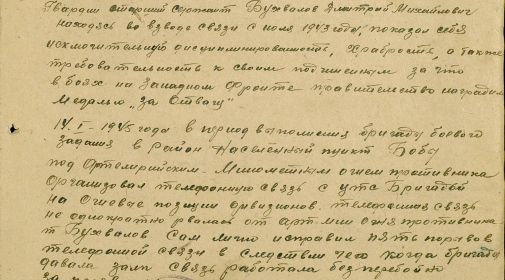 Гвардии старший сержант Бухвалов Дмитрий Михайлович
находясь во взводе связи с июля 1943 года, показал себя
исключительную дисциплинированность, храбрость, а также
требовательность к своим подчиненым за что
в боях на Западном фронте правительство наградило
Медалью "за Отвагу"
14.I-1945 года в период выполнения бригады боевого
задания в район населеный пункт Бобы
под Артелирийским-Минометным огнем противника
Организовал телефонную связь с УТС Бригадой
на огневые позиции дивизионов. телефонная связь
не однократно рвалась от арт. мин огня противника
т Бухвалов Сам лично исправил пять порывов
телефонной связи в следствии чего когда бригада
давала залп связь работала безперебойно